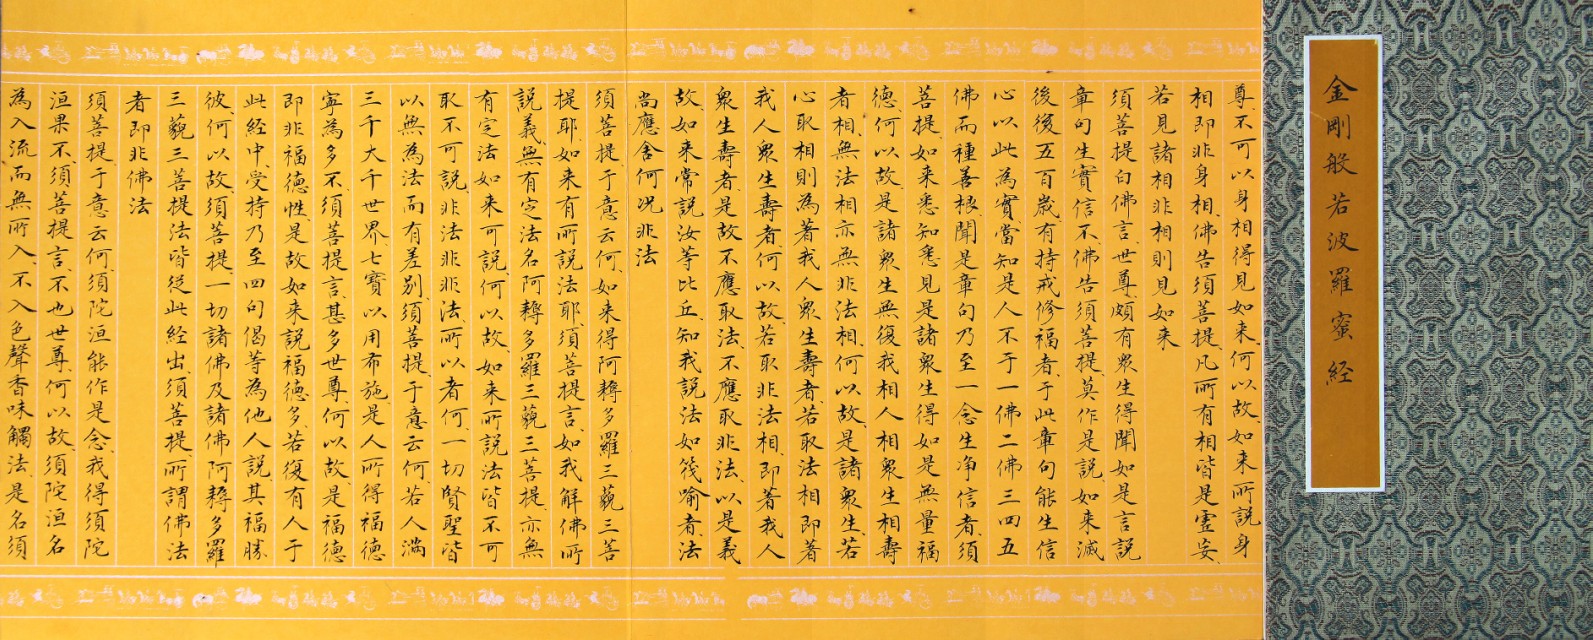 金剛般若波羅蜜经
尊、不可以身相得見如来、何以故、如来所説身
相、即非身相、佛告須菩提、凡所有相、皆是虚妄、
若見諸相非相、則見如来
須菩提白佛言、世尊、頗有衆生、得聞如是言説
章句、生實信不、佛告須菩提、莫作是説、如来滅
後、後五百歲、有持戒修福者、于此章句、能生信
心、以此為實、當知是人、不于一佛二佛三四五
佛而種善根、聞是章句、乃至一念生净信者、須
菩提、如来悉知悉見、是諸衆生、得如是無量福
德、何以故、是諸衆生、無復我相人相衆生相壽
者相、無法相、亦無非法相、何以故、是諸衆生、若
心取相、則為著我人衆生壽者、若取法相、即著
我人衆生壽者、何以故、若取非法相、即著我人
衆生壽者、是故不應取法、不應取非法、以是義
故、如来常説、汝等比丘、知我説法、如筏喻者、法
尚應舍、何况非法
須菩提、于意云何、如来得阿耨多羅三藐三菩
提耶、如来有所説法耶、須菩提言、如我解佛所
説義、無有定法名阿耨多羅三藐三菩提、亦無
有定法如来可説、何以故、如来所説法、皆不可
取、不可説、非法、非非法、所以者何、一切賢聖、皆
以無為法而有差别、須菩提、于意云何、若人滿
三千大千世界、七寶以用布施、是人所得福德
寧為多不、須菩提言、甚多、世尊、何以故、是福德
即非福德性、是故如来説福德多、若復有人、于
此經中、受持乃至四句偈等、為他人説、其福勝
彼、何以故、須菩提、一切諸佛、及諸佛阿耨多羅
三藐三菩提法、皆從此經出、須菩提、所謂佛法
者、即非佛法
須菩提、于意云何、須陀洹能作是念、我得須陀
洹果不、須菩提言、不也、世尊、何以故、須陀洹名
為入流、而無所入、不入色聲香味觸法、是名須